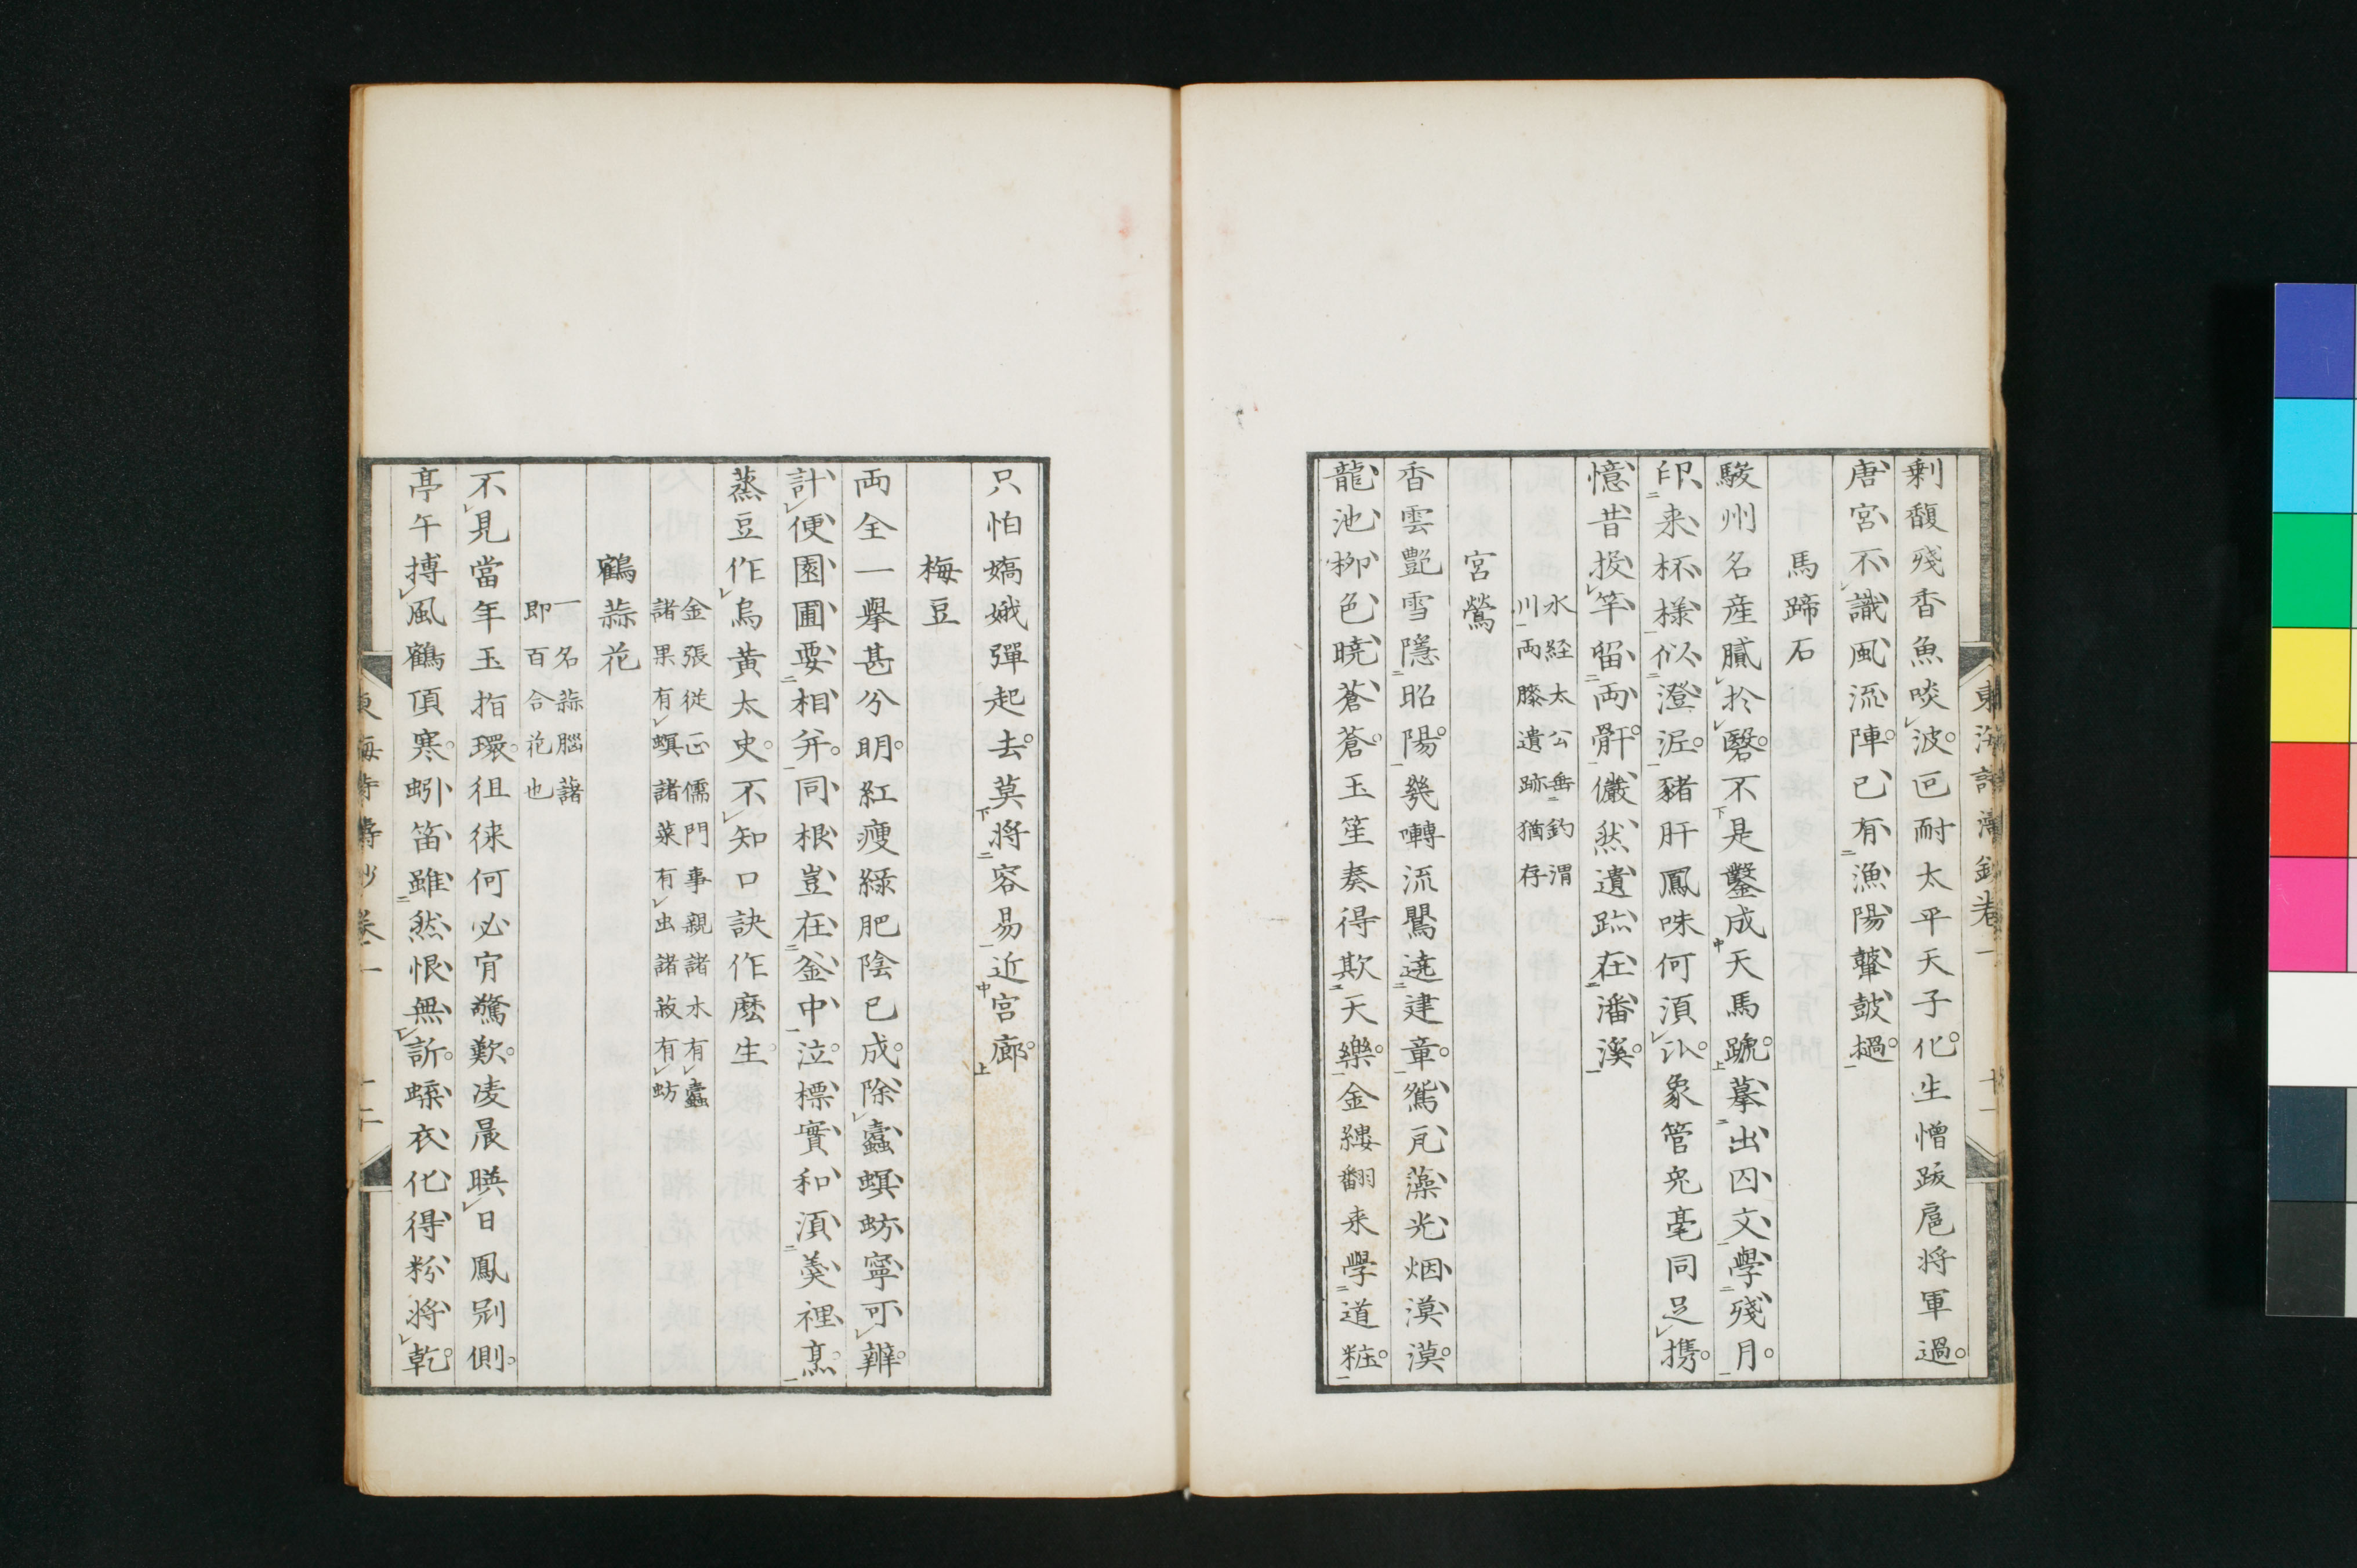 剰馥殘香魚啖波叵耐太平天子化生憎跋扈將軍過
唐宮不識風流陣已有漁陽鼙鼓撾
馬蹄石
駿州名産膩於硻不是鑿成天馬蹏摹出囚文學殘月
印来杯様似澄泥豬肝鳳咮何湏訟象管兎毫同足携
憶昔投竿留両骭儼然遺跡在潘溪
水経太公垂釣渭
川両膝遺跡猶存
宮鶯
香雲艶雪隱昭陽幾囀流鶯遶建章鴛瓦藻光烟漠漠
龍池柳色暁蒼蒼玉笙奏得欺天樂金縷翻来學道粧
東海詩濤鈔巻一 十一
只怕嬌娥彈起去莫將容易近宮廊
梅豆
両全一擧甚分明紅痩緑肥陰已成除蠧螟蚄寧可辨
計便園圃要相并同根豈在釜中泣標實和湏羹裡烹
蒸豆作烏黄太史不知口訣作麽生
金張従正儒門事親諸水有蠧
諸果有螟諸菜有虫諸菽有蚄
鶴蒜花
一名蒜腦藷
即百合花也
不見當年玉指環徂徠何必肯驚歎凌晨暎日鳳別側
亭午搏風鶴頂寒蚓笛雖然恨無訴蝶衣化得粉將乾